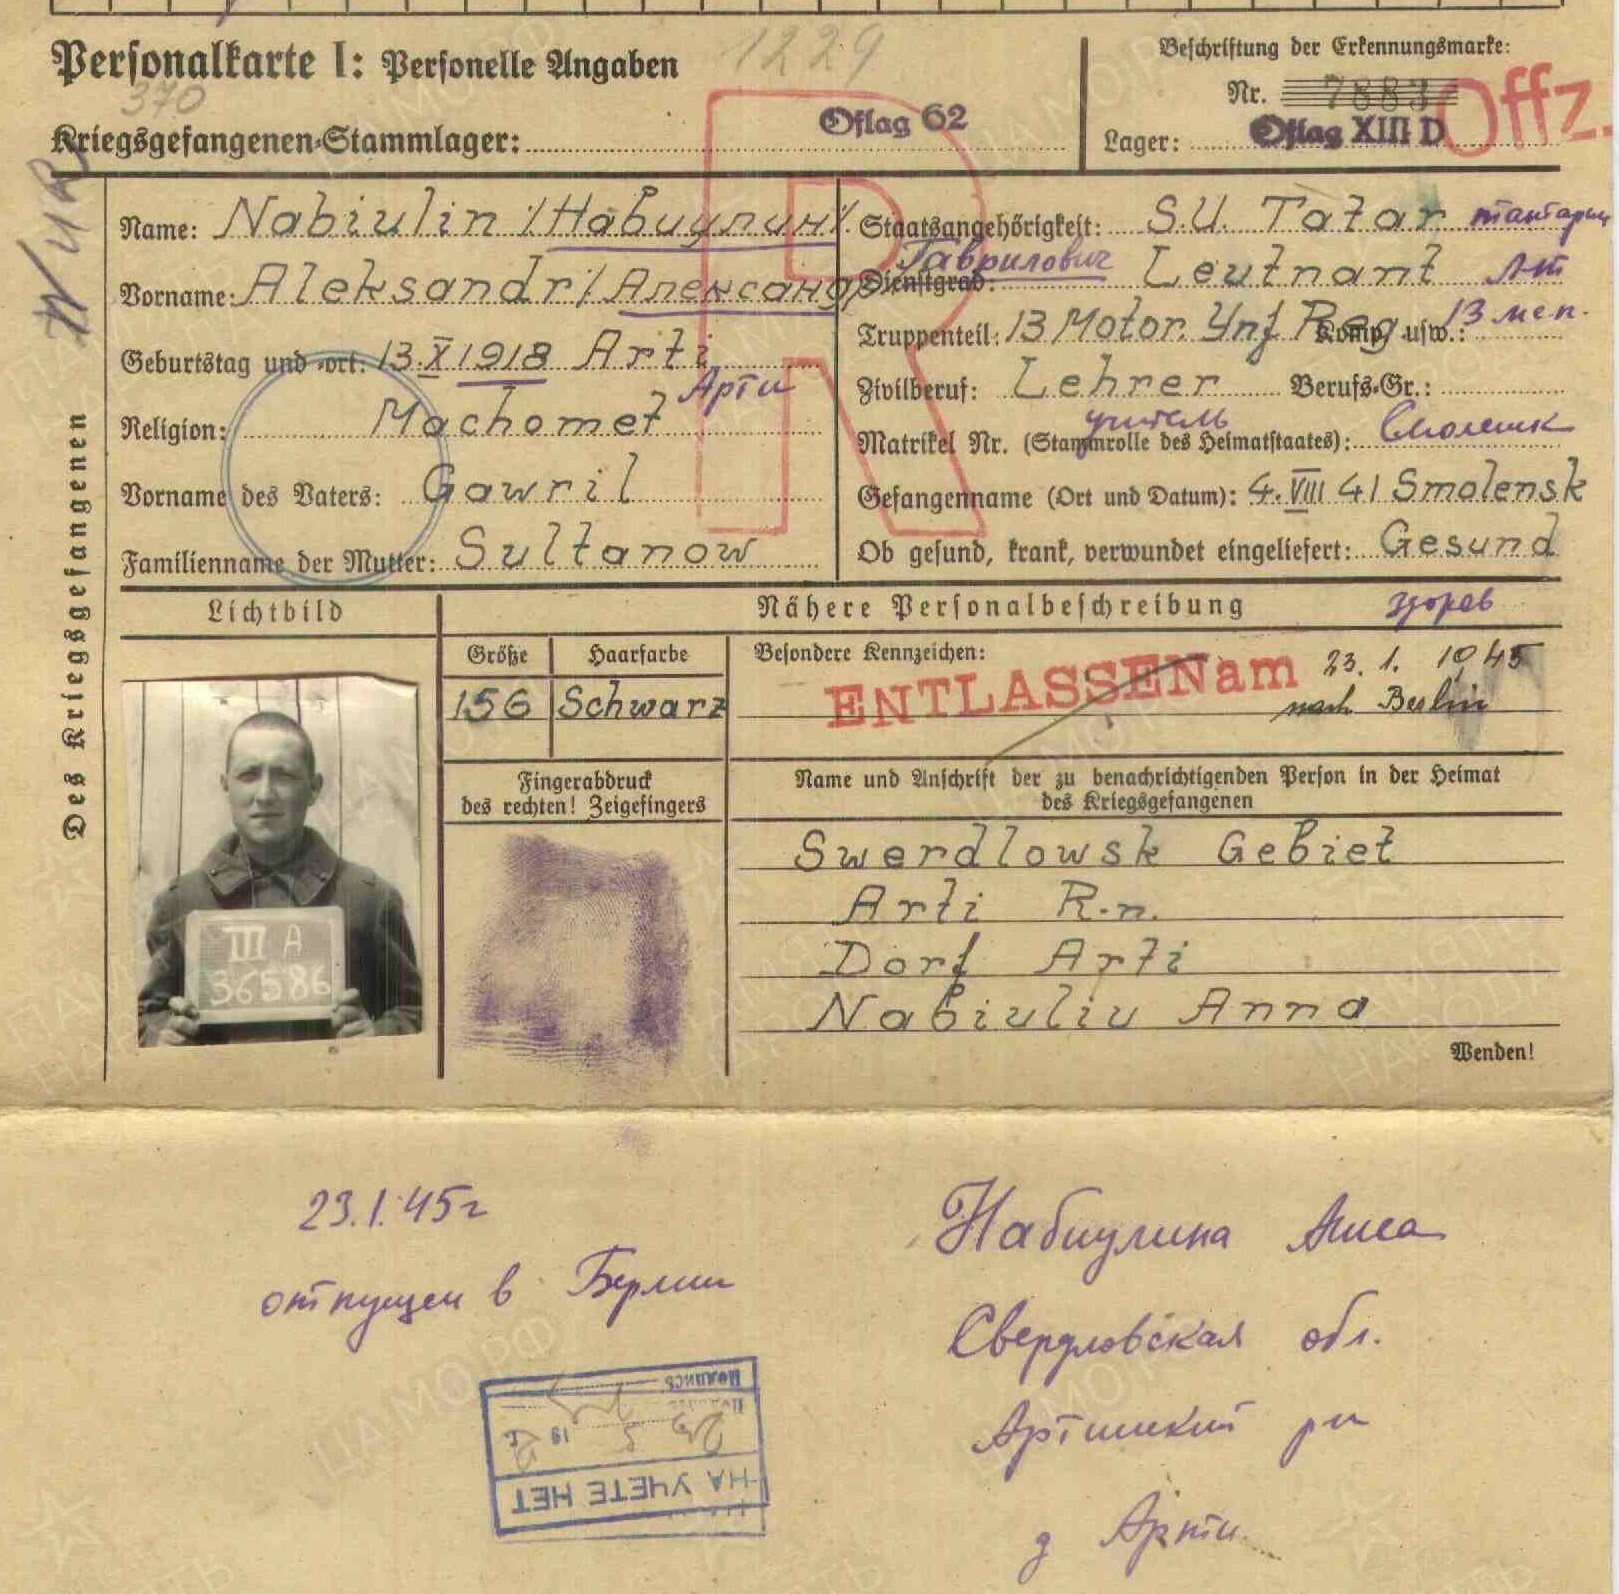 Personalkarte I: Personelle Angaben
1229
370
Kriegsgefangenen-Stammlager: Oflag 62
Beschriftung der Erkennungsmarke:
Nr. 7883
Lager: Oflag XIII D
Offz.
Des Kriegsgefangenen
Name: Nabiulin /Набиулин/
Vorname: Aleksandr /Александр/
Гаврилович
Geburtstag und -ort: 13.X 1918 Arti
Арти
Religion: Machomet
Vorname des Vaters: Gawril
Familienname der Mutter: Sultanow
Staatsangehörigkeit: S.U. Tatar
Dienstgrad: Leutnant Л-т
Truppenteil: 13 Motor. Ynf Reg Komp. usw.: 13 мсп.
Zivilberuf: Lehrer Berufs-Gr.:
учитель
Matrikel Nr. (Stammrolle des Heimatstaates):
Смоленск
Gefangenname (Ort und Datum): 4.VIII 41 Smolensk
Ob gesund, krank, verwundet eingeliefert: Gesund
здоров
R
Lichtbild
Nähere Personalbeschreibung
Größe
Haarfarbe
Besondere Kennzeichen:
156
Schwarz
ENTLASSEN am 23. 1. 1945
nach Berlin
III A
36586
Fingerabdruck
des rechten! Zeigefingers
Name und Anschrift der zu benachrichtigenden Person in der Heimat
des Kriegsgefangenen
Swerdlowsk Gebiet
Arti R-n.
Dorf Arti
Nabiuliu Anna
Wenden!
23.1.45г
отпущен в Берлин
Набиулина
Свердловская обл.
Артинский рн
д Арти
НА УЧЕТЕ НЕТ
19
Подпись